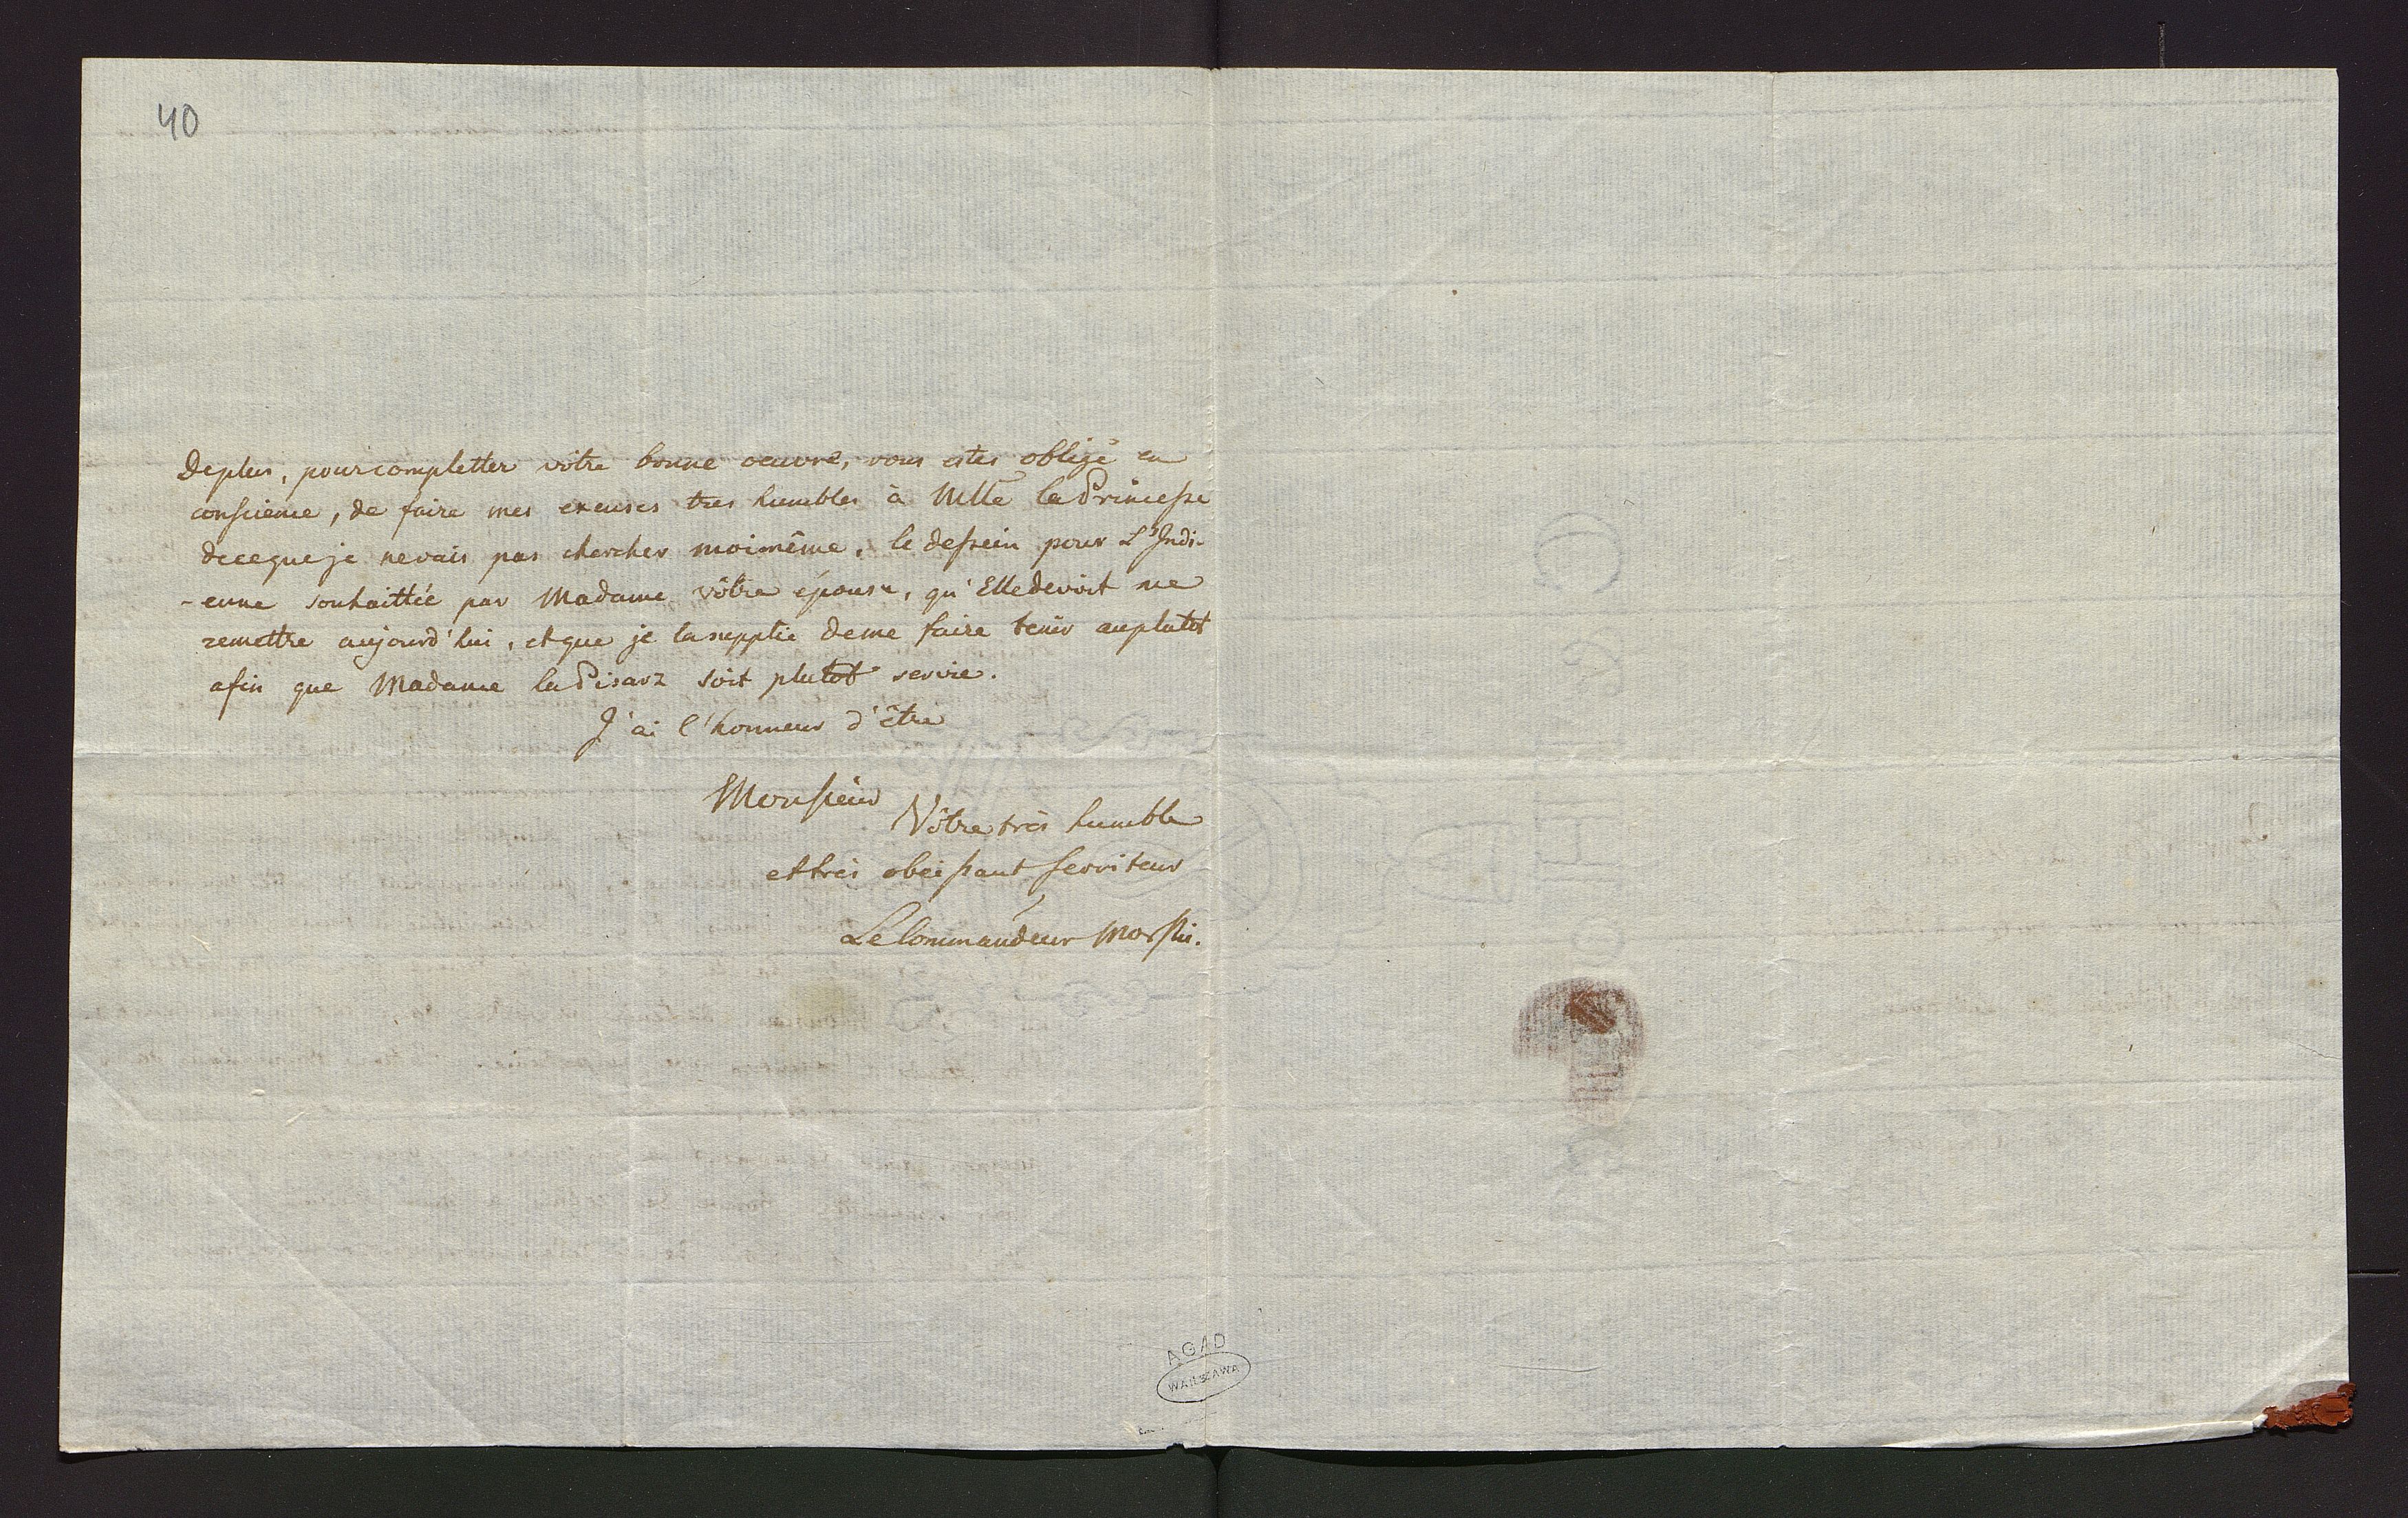 40
De plus, pour completter vôtre bonne oeuvre, vous estes obligé en
conscience, de faire mes excuses tres humbles à Mlle la Princesse
de ce que je ne vais pas chercher moi même, le dessein pour L'Indi-
-enne souhaittée par Madame vôtre épouse, qu'Elle devoit me
remettre aujourd'hui, et que je la supplie de me faire tenir au plutot
afin que Madame la Pisarz soit plutot servie.
J'ai l'honneur d'être
Monsieur
Vôtre très humble
et très obeissant serviteur
Le Commandeur Morski.
AGAD
WARSZAWA